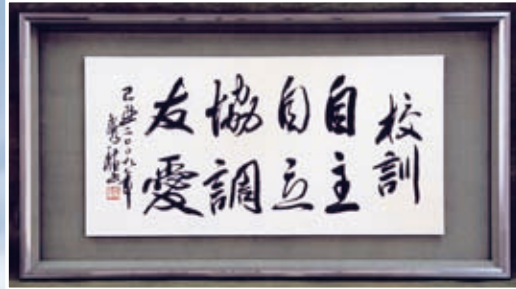 校訓
自主
自立
協調
友愛
己丑二〇〇九年